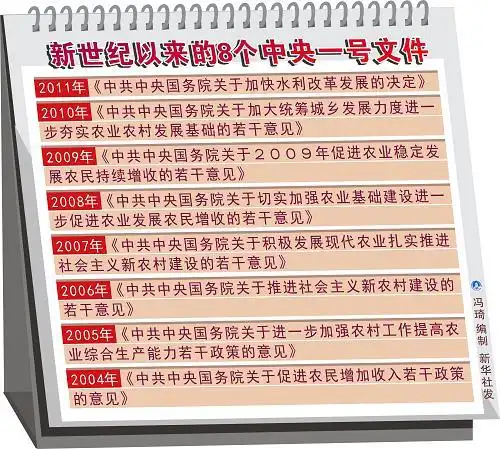 新世纪以来的8个中央一号文件
2011年《中共中央国务院关于加快水利改革发展的决定》
2010年《中共中央国务院关于加大统筹城乡发展力度进一
步夯实农业农村发展基础的若干意见》
2009年《中共中央国务院关于２００９年促进农业稳定发
展农民持续增收的若干意见》
2008年《中共中央国务院关于切实加强农业基础建设进一
步促进农业发展农民增收的若干意见》
2007年《中共中央国务院关于积极发展现代农业扎实推进
社会主义新农村建设的若干意见》
2006年《中共中央国务院关于推进社会主义新农村建设的
若干意见》
2005年《中共中央国务院关于进一步加强农村工作提高农
业综合生产能力若干政策的意见》
2004年《中共中央国务院关于促进农民增加收入若干政策
的意见》
冯琦 编制 新华社发